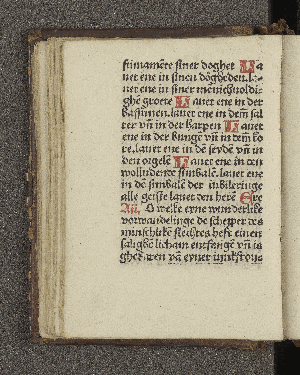 firmamēte siner doghet La
uet ene in sinen dogheden. la-
uet ene in siner menichuoldi
ghē groete Lauet ene in der
bassunen. lauet ene in dem sal
ter vñ in der harpen Lauet
ene in der bunge vñ in dem ko
re. lauet ene in dē seydē vñ in
den orgelē Lauet ene in den
wolludende simbalē. lauet ene
in dē simbalē der iubileringe
alle geiste lauet den herē Gre
Añ. O welke eyne wunderlike
vorwandelinge de schepper des
minschlikē slechtes heft einen
salighē licham entfangē vñ is
ghebaren vā eyner iunkfrou